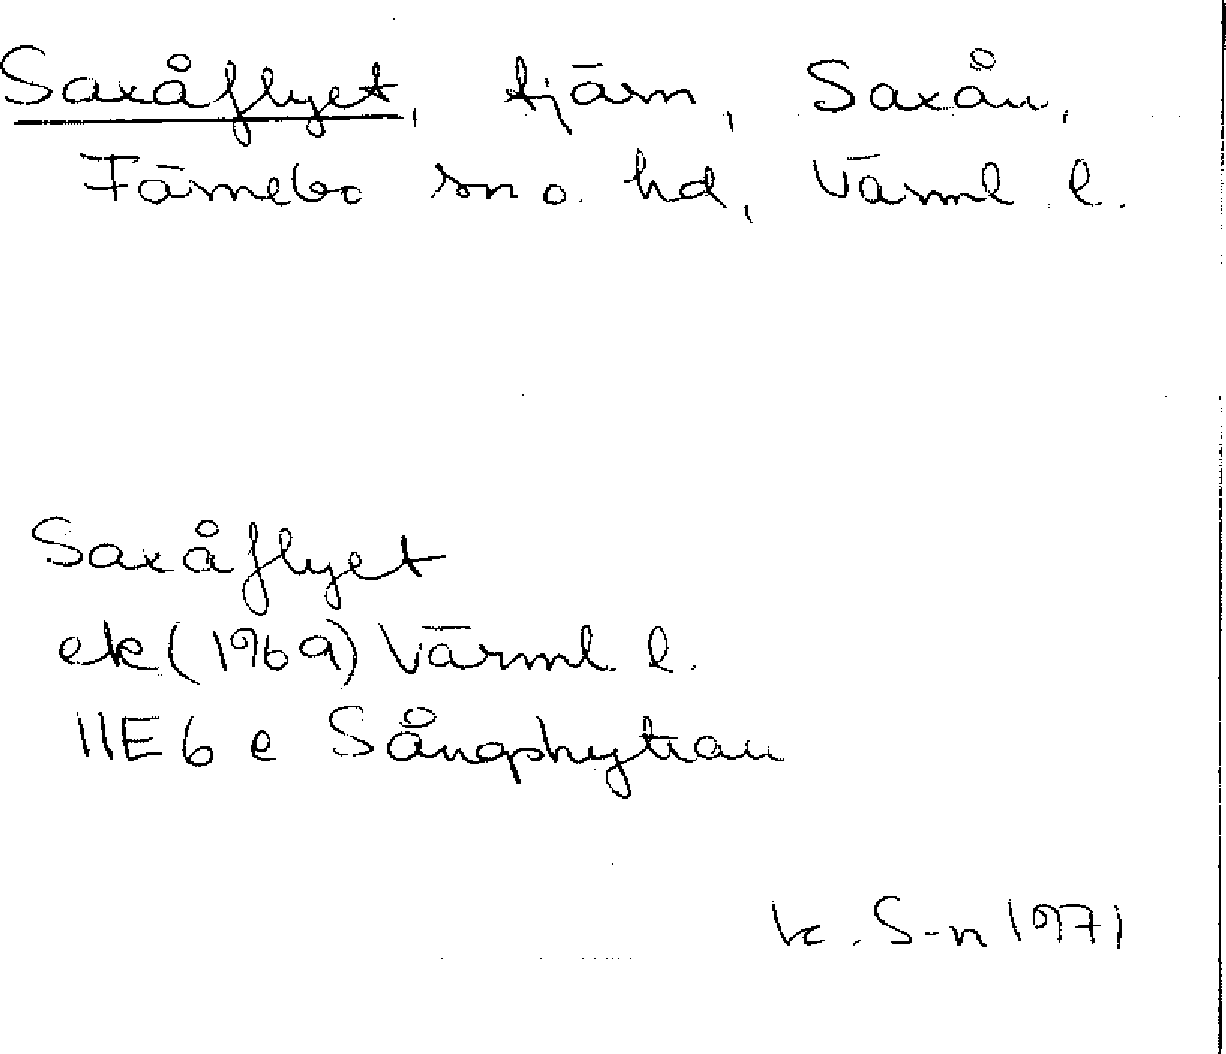 Saxåflyet, tjärn, Saxån,
Färnebo sn o. hd, Värml. l.
Saxåflyet
ek (1969) Värml. l.
11E 6 e Sångshyttan
K. S-n 1971